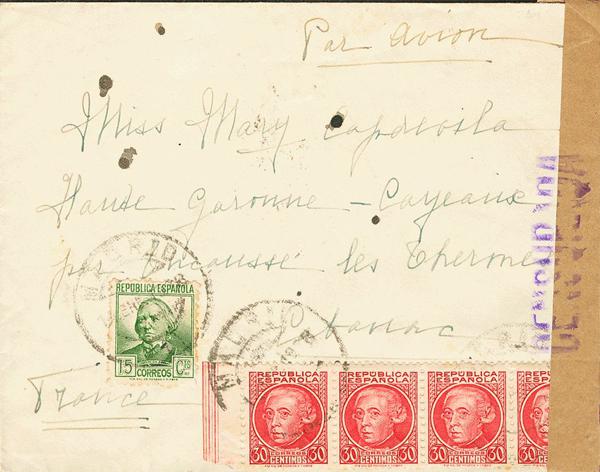 Par avion
Miss Mary Capdevila
Haute Garonne – Cazeaux
par Encausse les Thermes
France
REPÚBLICA ESPAÑOLA
15 Cts
CORREOS
MADRID
REPUBLICA ESPAÑOLA
30 CENTIMOS 30
REPUBLICA ESPAÑOLA
30 CENTIMOS 30
REPUBLICA ESPAÑOLA
30 CENTIMOS 30
REPUBLICA ESPAÑOLA
30 CENTIMOS